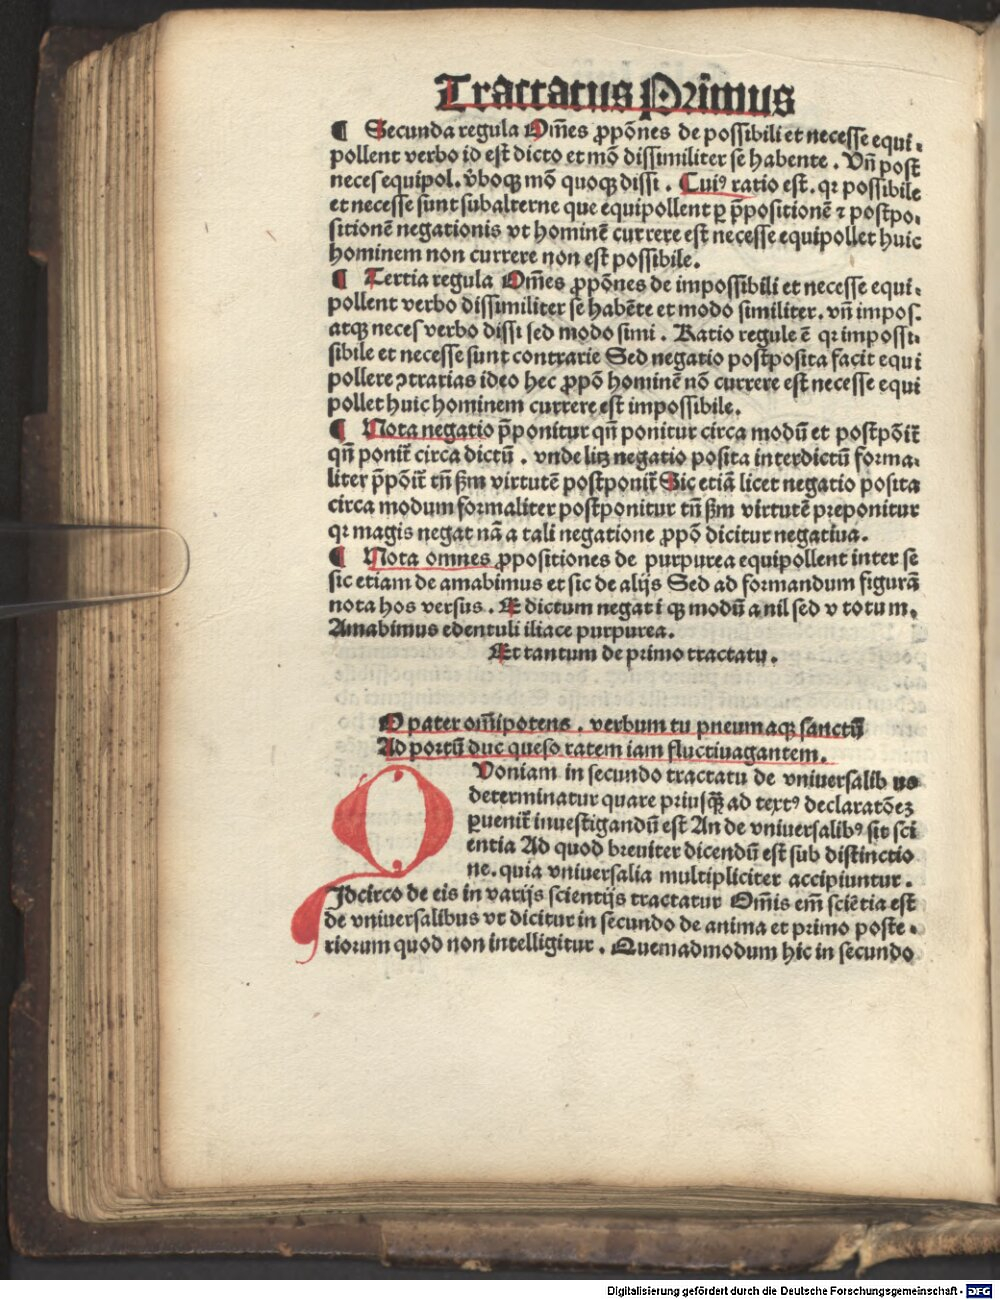 Tractatus Primus
¶ Secunda regula Om̄es ꝓpōnes de possibili et necesse equi⸗
pollent verbo id est dicto et mō dissimiliter se habente. Vn̄ post
neces equipol. v̄boqꝫ mō quoqꝫ dissi. Cuiꝰ ratio est. qꝛ possibile
et necesse sunt subalterne que equipollent ꝑ p̄positionē ⁊ postpo⸗
sitionē negationis vt hominē currere est necesse equipollet huic
hominem non currere non est possibile.
¶ Tertia regula Om̄es ꝓpōnes de impossibili et necesse equi⸗
pollent verbo dissimiliter se habēte et modo similiter. vn̄ impos.
atqꝫ neces verbo dissi sed modo simi. Ratio regule ē qꝛ impossi⸗
sibile et necesse sunt contrarie Sed negatio postposita facit equi
pollere ꝯtrarias ideo hec ꝓpō hominē nō currere est necesse equi
pollet huic hominem currere est impossibile.
¶ Nota negatio p̄ponitur qn̄ ponitur circa modū et postpōit̄
qn̄ ponit̄ circa dictū. vnde litꝫ negatio posita inter dictū forma⸗
liter p̄pōit̄ tn̄ ẜm virtutē postponit̄ Sic etiā licet negatio posita
circa modum formaliter postponitur tn̄ ẜm virtutē preponitur
qꝛ magis negat nā a tali negatione ꝓpō dicitur negatiua.
¶ Nota omnes ꝓpositiones de purpurea equipollent inter se
sic etiam de amabimus et sic de alijs Sed ad formandum figurā
nota hos versus. E dictum negat i qꝫ modū a nil sed v totum.
Amabimus edentuli iliace purpurea.
Et tantum de primo tractatu.
O pater om̄ipotens. verbum tu pneumaqꝫ sanctū
Ad portū duc queso ratem iam fluctiuagantem.
QVoniam in secundo tractatu de vniuersalibus
determinatur quare priusqꝫ̄ ad textꝰ declaratōeꝫ
ꝑuenit̄ inuestigandū est An de vniuersalibꝰ sit sci
entia Ad quod breuiter dicendū est sub distinctio
ne. quia vniuersalia multipliciter accipiuntur.
Jdcirco de eis in varijs scientijs tractatur Om̄is em̄ sciētia est
de vniuersalibus vt dicitur in secundo de anima et primo poste⸗
riorum quod non intelligitur. Quemadmodum hic in secundo
Digitalisierung gefördert durch die Deutsche Forschungsgemeinschaft - DFG